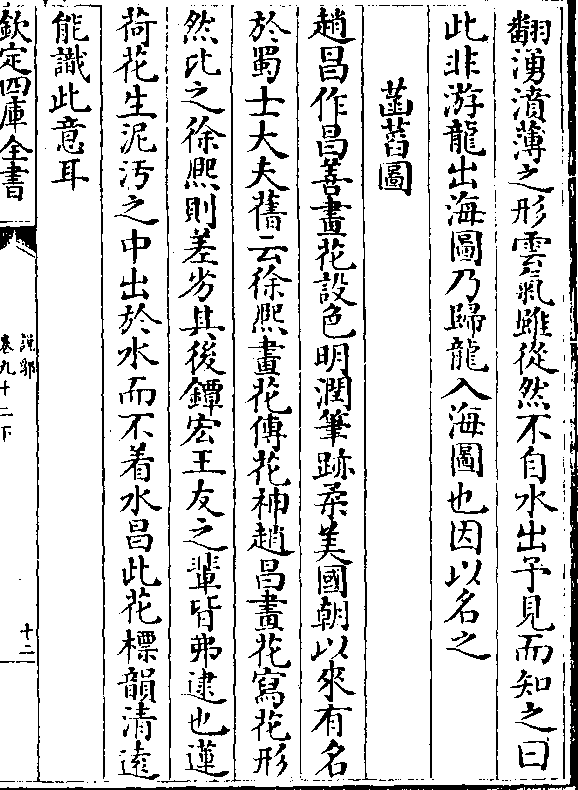 翻湧濆薄之形雲氣雖從然不自水出予見而知之曰
此非游龍出海圖乃歸龍入海圖也因以名之
菡萏圖
趙昌作昌善畫花設色明潤筆跡柔美國朝以來有名
於蜀士大夫舊云徐熙畫花傳花神趙昌畫花寫花形
然比之徐熙則差劣其後鐔宏王友之輩皆弗逮也蓮
荷花生泥汚之中出於水而不着水昌此花標韻清遠
能識此意耳
欽定四庫全書
說郛
卷九十二下
十二